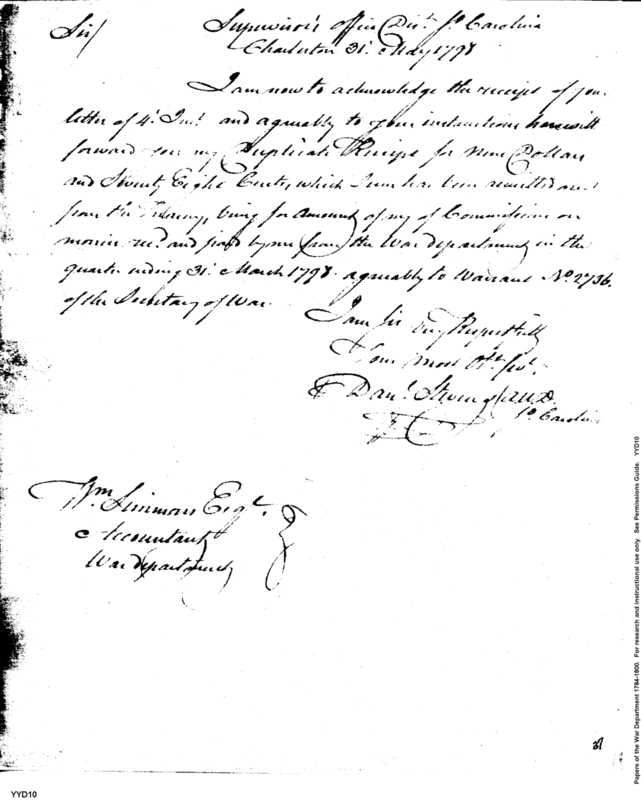 Supervisor's office Dist. So. Carolina
Sir/ Charleston 31st May 1798
I am now to acknowledge the receipt of your
letter of 4th Inst. and agreeably to your instructions herewith
forward you my Duplicate Receipt for Nine Dollars
and Twenty Eight Cents, which sum has been remitted me
from the Treasury, being for amount of my Commissions on
monies recd. and paid by me from the War department in the
quarter ending 31st March 1798 agreeably to Warrant No. 2736.
of the Secretary of War.
I am Sir very Respectfully
Your most Obt. Servt.
Danl. Stevens
So. Carolina
Wm. Simmons Esqr.
Accountant
War department
27
YYD10
Papers of the War Department 1784-1800. For research and instructional use only. See Permissions Guide. YYD10